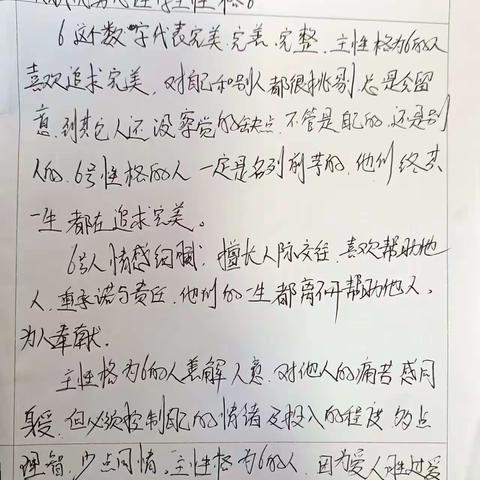 主性格6
6这个数字代表完美、完善、完整、主性格为6的人
喜欢追求完美、对自己和别人都很挑剔总是会留
意到其它人还没察觉的缺点、不管是自己的、还是别
人的、6号性格的人一定是名列前茅的、他们终其
一生都在追求完美。
6号人情感细腻、擅长人际交往、喜欢帮助他
人、重承诺与责任、他们的一生都离不开帮助他人、
为人奉献.
主性格为6的人善解人意、对他人的痛苦感同
身受、但必须控制自己的情绪及投入的程度多点
理智、少点同情、主性格为6的人、因为爱人胜过爱